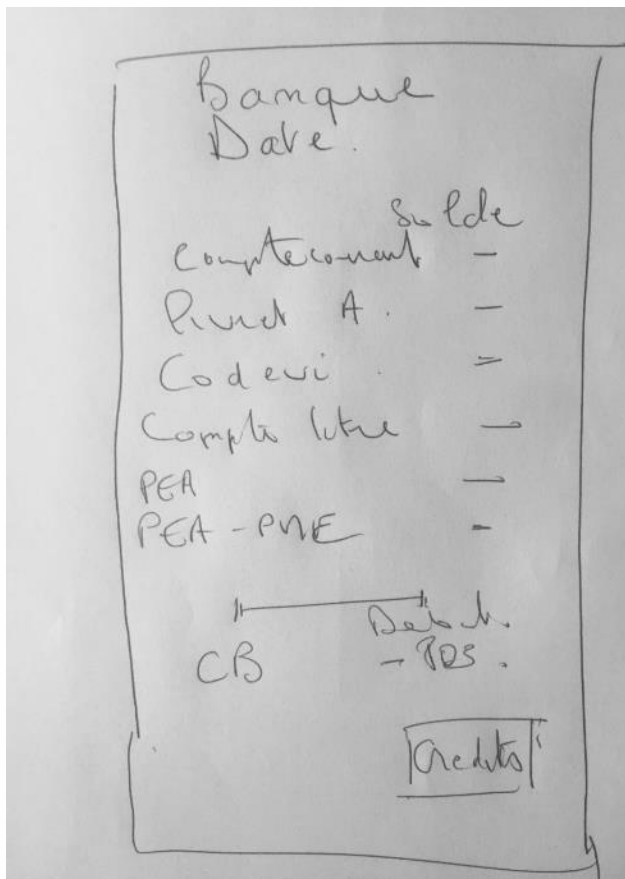 Banque
Date.
Solde
Compte courant –
Livret A. –
Codevi =
Compte titre –
PEA –
PEA-PME -
Débit.
CB
Crédits